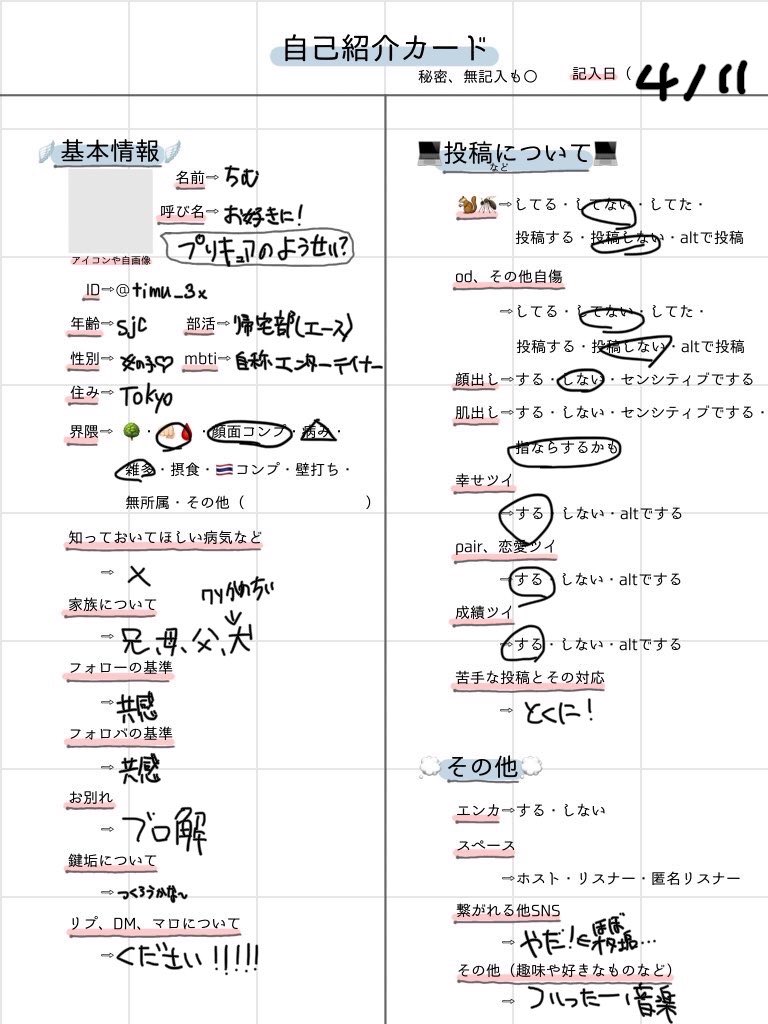 自己紹介カード
秘密、無記入も〇
記入日（4/11
🪽基本情報🪽
名前⇨ちむ
呼び名⇨お好きに！
プリキュアのようせい?
アイコンや自画像
ID⇨@timu_3x
年齢⇨sjc 部活⇨帰宅部(エース)
性別⇨女の子♡ mbti⇨自称エンターテイナー
住み⇨Tokyo
界隈⇨🌳・👊🏻🩸・顔面コンプ・病み・
雑多・摂食・🇹🇭コンプ・壁打ち・
無所属・その他（ ）
知っておいてほしい病気など
⇨×
家族について
⇨兄、母、父、犬
フォローの基準
⇨共感
フォロバの基準
⇨共感
お別れ
⇨ブロ解
鍵垢について
⇨つくろうかな〜
リプ、DM、マロについて
⇨ください!!!!!
💻投稿について💻
など
🐿️🦟⇨してる・してない・してた・
投稿する・投稿しない・altで投稿
od、その他自傷
⇨してる・してない・してた・
投稿する・投稿しない・altで投稿
顔出し⇨する・しない・センシティブでする
肌出し⇨する・しない・センシティブでする・
指ならするかも
幸せツイ
⇨する・しない・altでする
pair、恋愛ツイ
⇨する・しない・altでする
成績ツイ
⇨する・しない・altでする
苦手な投稿とその対応
⇨とくに！
💭その他💭
エンカ⇨する・しない
スペース
⇨ホスト・リスナー・匿名リスナー
繋がれる他SNS
⇨やだ！⇐ほぼ
ヲタ垢…
その他（趣味や好きなものなど）
⇨音楽